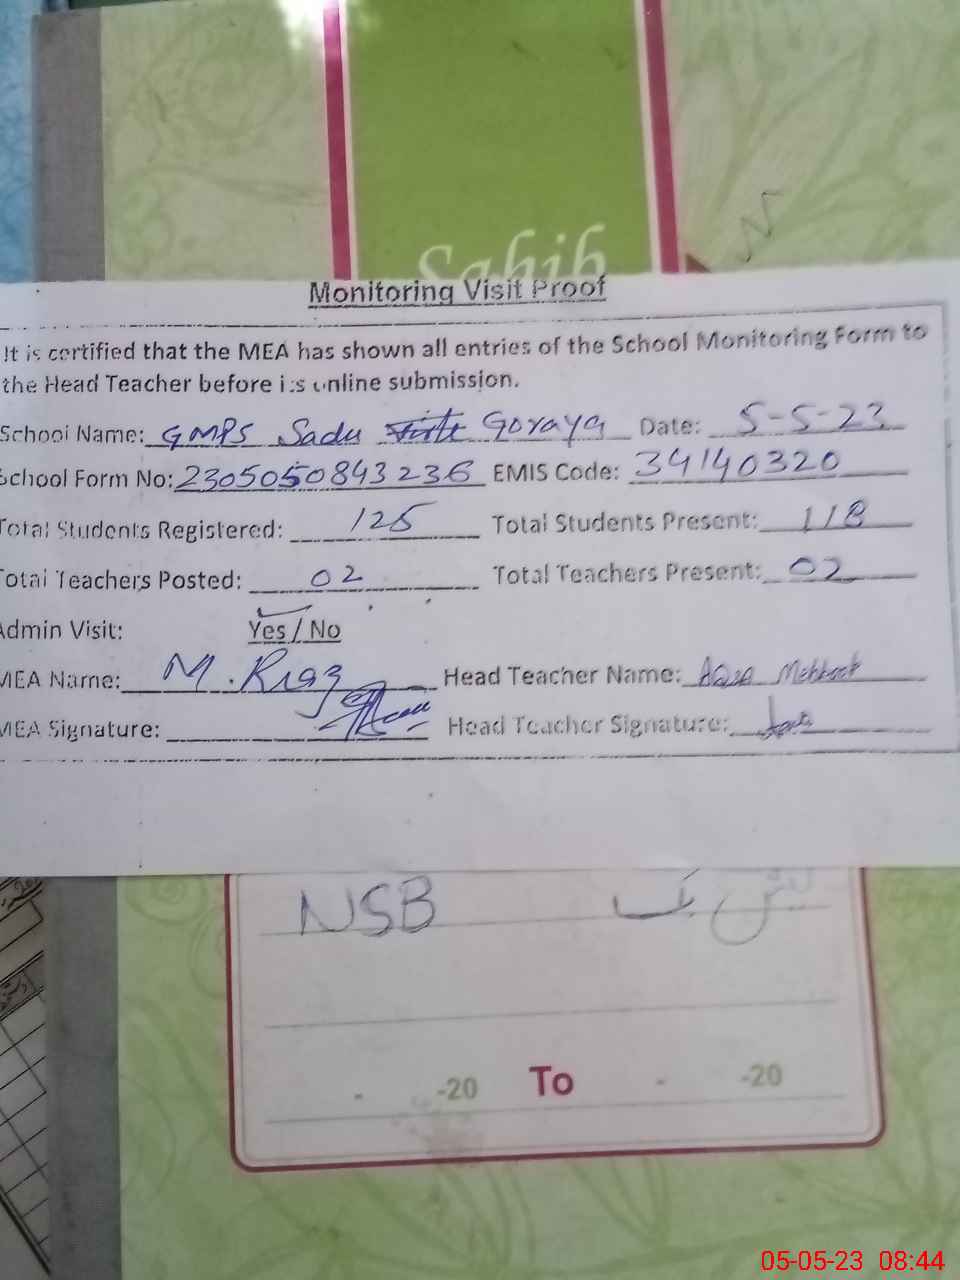 Sahib
Monitoring Visit Proof
It is certified that the MEA has shown all entries of the School Monitoring Form to
the Head Teacher before its online submission.
School Name: GMPS Sadu Goraya Date: 5-5-23
School Form No: 2305050843236 EMIS Code: 34140320
Total Students Registered: 125 Total Students Present: 118
Total Teachers Posted: 02 Total Teachers Present: 02
Admin Visit: Yes / No
MEA Name: M. Riaz Head Teacher Name:
MEA Signature: Head Teacher Signature:
NSB
- -20 To - -20
05-05-23 08:44